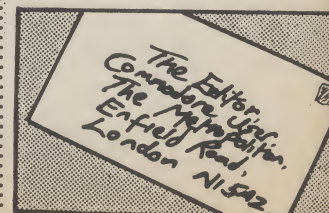 The Editor,
Commodore User,
The Metropolitan,
Enfield Road,
London N1 5AZ